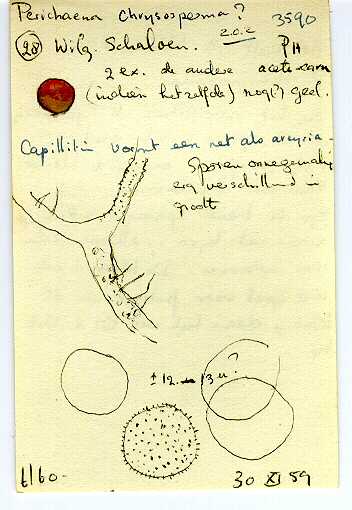 Perichaena Chrysosperma?
3590
(28) Wilg. Schalven. z.o.z
PH
2 ex. de andere aceto-carm
(indien hetzelfde) nog(?) geel.
Capillitium vormt een net als arcyria.
Sporen onregelmatig
erg verschillend in
grootte
± 12 - 13 u?
6/60.
30 XI 59